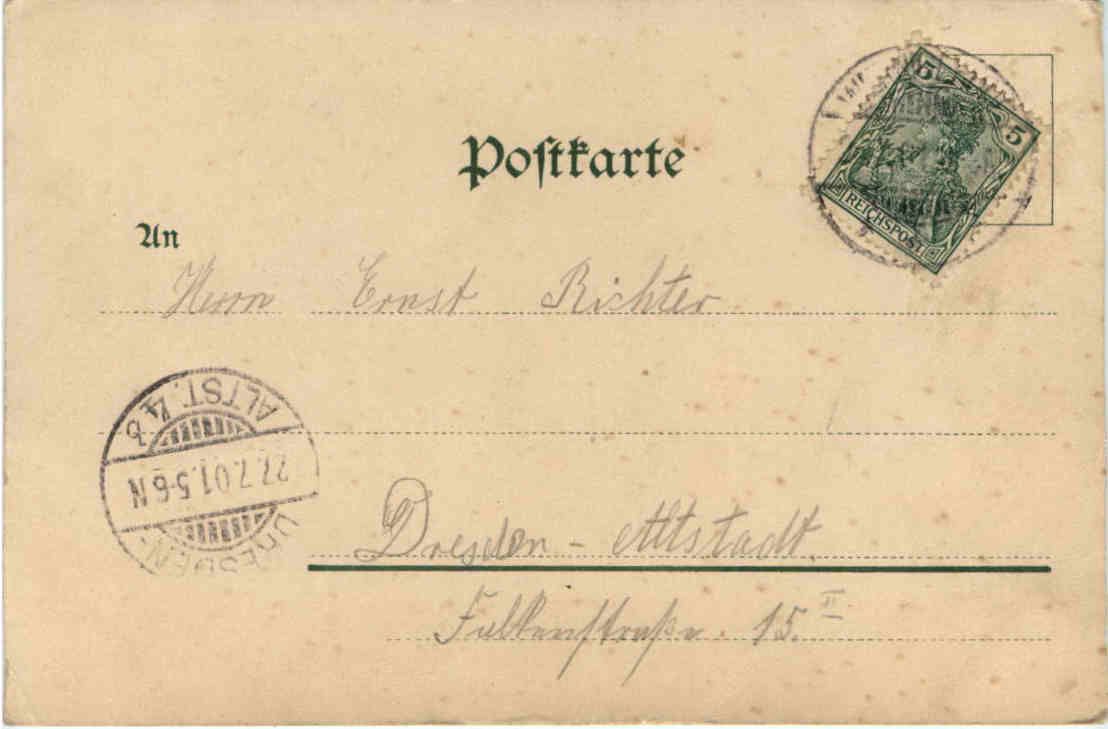 Postkarte
5 5
REICHSPOST
An
Herrn Ernst Richter
ALTST. 4 b
27.7.01.5-6N
DRESDEN-
Dresden - Altstadt.
Falkenstraße. 15. II